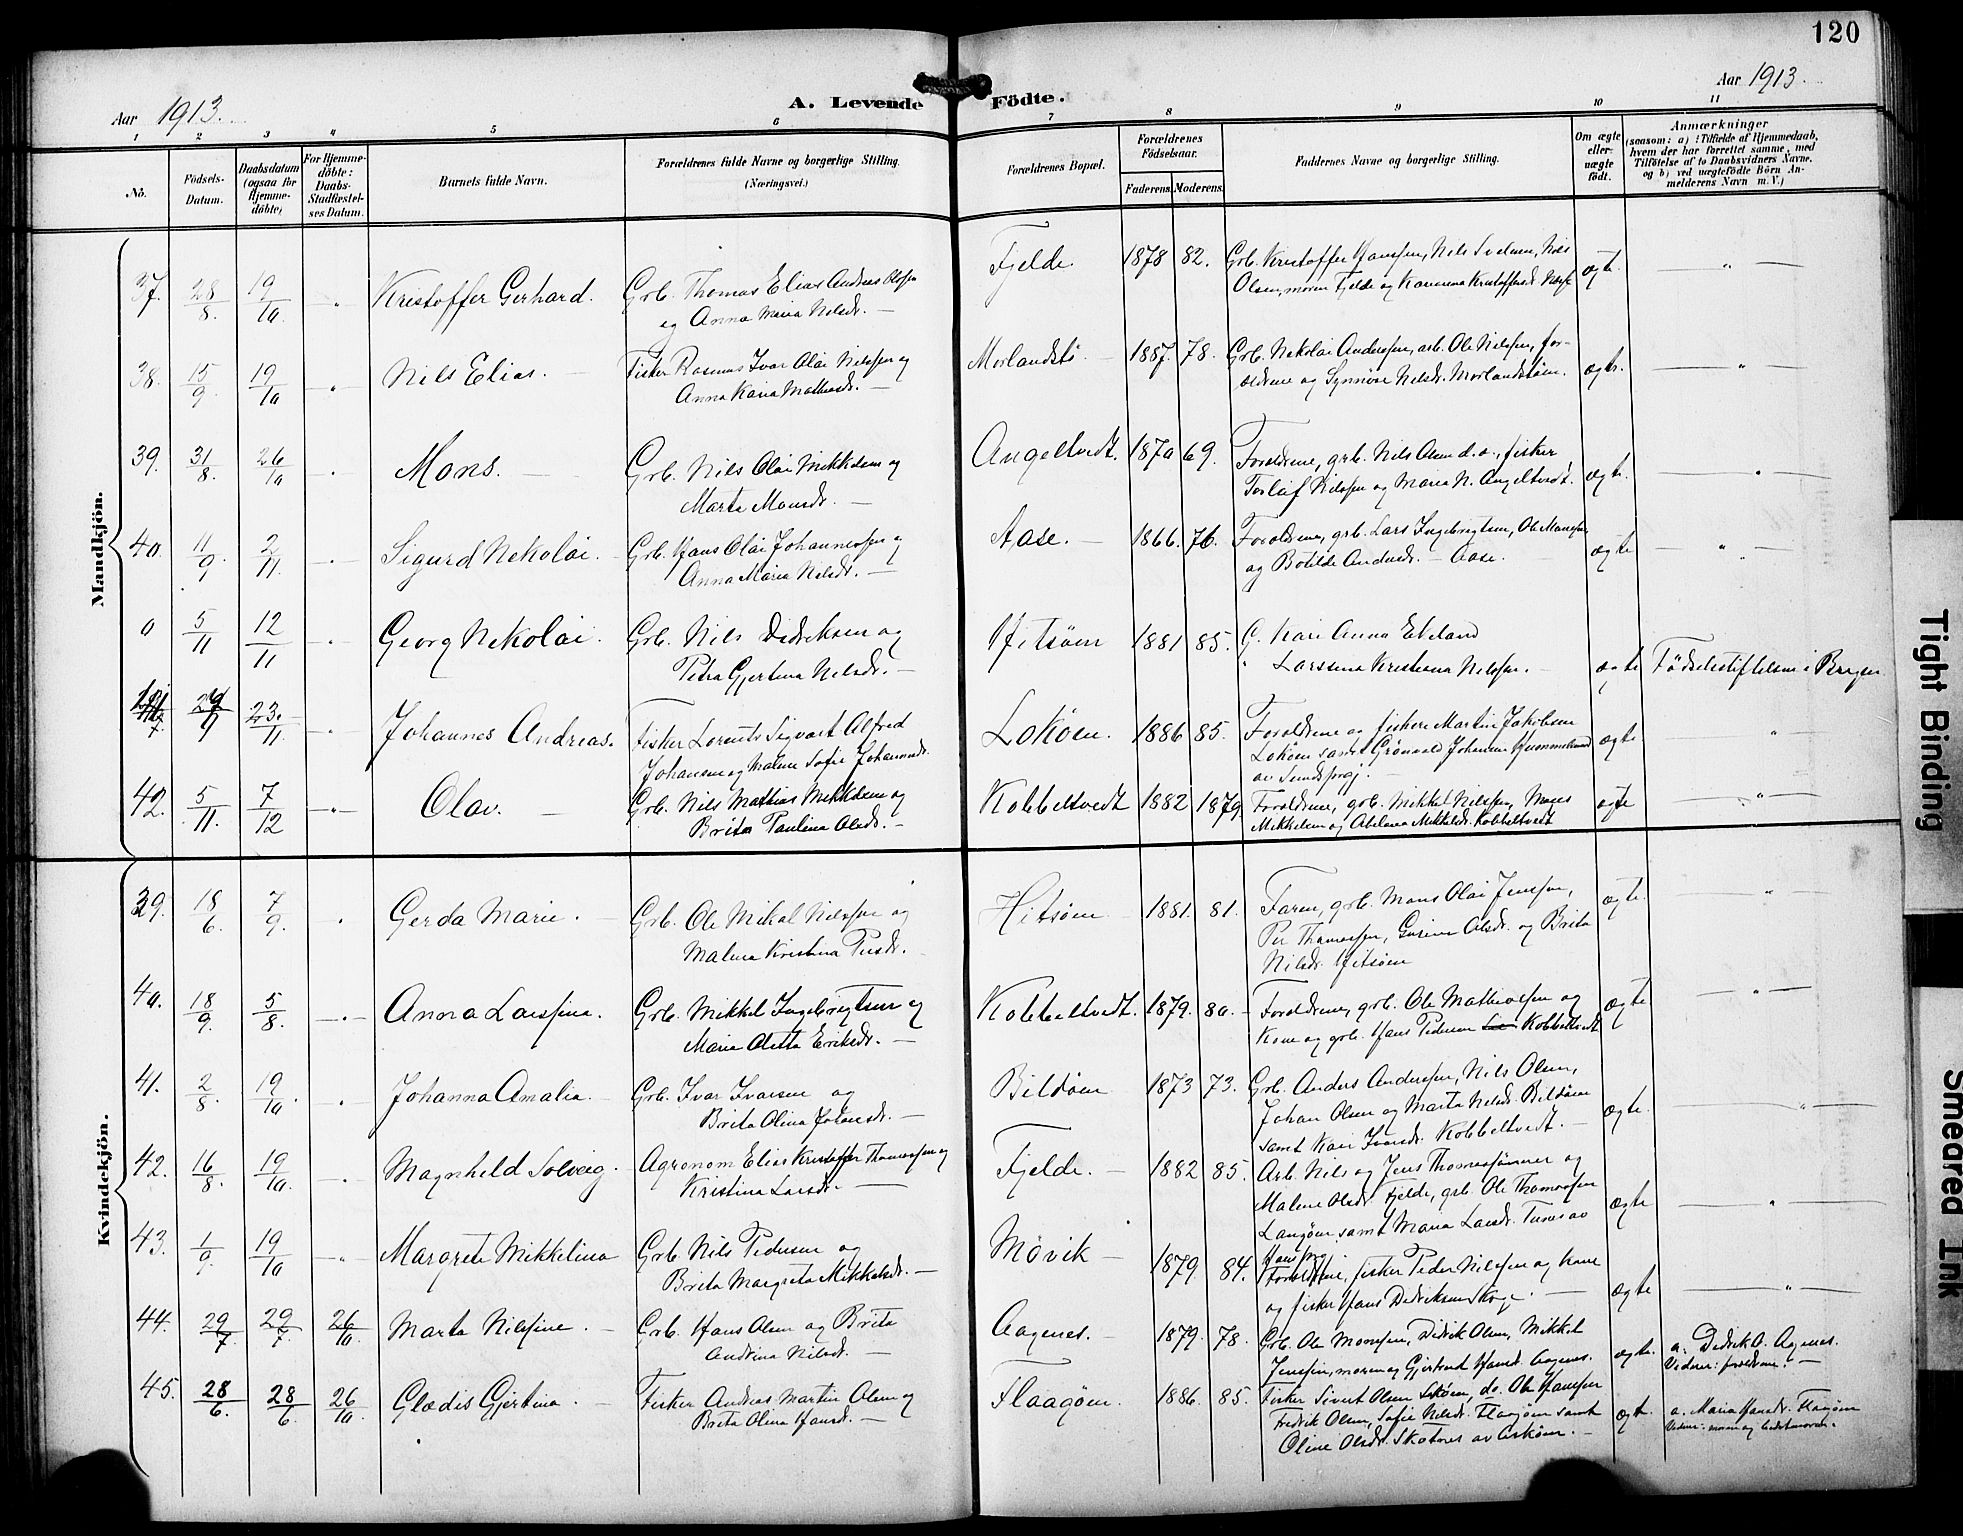 120
Aar 1913.
A. Levende Födte.
Aar 1913.
1 2 3 4 5 6 7 8 9 10 11
No.
Födsels-Datum.
Daabsdatum (ogsaa for Hjemme-döbte)
For Hjemme-döbte: Daabs-Stadfæstel-ses Datum.
Barnets fulde Navn.
Forældrenes fulde Navne og borgerlige Stilling. (Næringsvei.)
Forældrenes Bopæl.
Forældrenes Födselsaar.
Faderens. Moderens.
Faddernes Navne og borgerlige Stilling.
Om ægte eller uægte födt.
Anmærkninger
(saasom: a) i Tilfælde af Hjemmedaab, hvem der har forrettet samme, med Tilföielse af to Daabsvidners Navne. og b) ved uægtefödte Börn An-melderens Navn m. V.)
Mandkjön.
37. 28/8. 19/10 " Kristoffer Gerhard. Grb. Thomas Elias Andreas Olsen Fjelde. 1878 82. Grb. Kristoffer Hansen, Nils
og Anna Maria Nilsdr. — Olsen, moren Fjelde og ægte. — " —
38. 15/9 19/10 " Nils Elias. — Fisker Rasmus Ivar Olai Nilssen og Morlandstö 1887. 78. Grb. Nikolai Anderssen, arb. Ole Nilssen, for-
Anna Karia — ældrene og Synnöve Nilsdr. Morlandstöen. ægte. — " —
39. 31/8. 26/10 " Mons. — Grb. Nils Olai Mikkelsen og Angeltvedt. 1870 69. Forældrene, grb. Nils Olsen d.o., fisker
Marta Monsdr. — Torleif Nilssen og Maria N. Angeltvedt. ægte. — " —
40. 11/9 2/11. " Sigurd Nikolai. Grb. Hans Olai Johannessen og Aase. — 1866. 76. Forældrene, grb. Lars Ingebrigtsen, Ole Monssen
Anna Maria Nilsdr. — og Botilde Andersdr. — Aase. ægte — " —
0 5/11 12/11 " Georg Nikolai. Grb. Nils Didriksen og Hitsöen 1881 85. G. Kari Anna Ekeland
Petra Gjertina Nilsdr. — " Larssina Kristiana Nilssen. — ægte Födselsstiftelsen i Bergen
23./11. " Johannes Andreas. Fisker Lorents Sigvart Alfred Loköen. 1886 85. Forældrene og fiskere Martin Jakobsen
Johansen og Malene Sofie Johannesdr. Loköen samt Johansen
av Sundsprgj. — ægte — " —
42. 5/11. 7/12 — " — Olav. — Grb. Nils Mathias Mikkelsen og Kobbeltvedt 1882 1879. Forældrene, grb. Mikkel Nilssen, Mons
Brita Paulina Olsdr. — Mikkelsen og Mikkelsdr. Kobbeltvedt ægte — " —
Kvindekjön.
39. 18/6. 7/9. " Gerda Marie. — Grb. Ole Mikal Nilssen og Hitsöen 1881. 81. Faren, grb. Mons Olai Jenssen,
Malena Kristina Persdr. — Per Thomassen, Olsdr. og Brita
Nilsdr. Hitsöen ægte. "
40. 18/9. 5/8. — " — Anna Larssina. Grb. Mikkel Ingebrigtsen og Kobbeltvedt. 1879. 80. — Forældrene, grb. Ole Mathiassen og
Maria Oletta Eriksdr. — Kone og grb. Hans Pedersen Kobbeltvedt ægte — " —
41. 2/8. 19/10. " Johanna Amalia. — Grb. Ivar Ivarsen og Bildöen 1873 73. Grb. Anders Anderssen, Nils Olsen,
Brita Olina Johansdr. — Johan Olsen og Marta Nilsdr. Bildöen
samt Kari Ivarsdr. Kobbeltvedt. — ægte. — " —
42. 16/8. 19/10. " Magnhild Solveig. Agronom Elias Kristoffer Thomassen og Fjelde. — 1882 85. Arb. Nils og Jens Thomassönner og
Kristina Larsdr. — Malene Olsdr. Fjelde, grb. Ole Thomassen
Langöen samt Maria Larsdr. av ægte — " —
43. 1/9. 19/10 — " — Margrete Mikkelina Grb. Nils Pedersen og Mövik — 1879 84. Forældrene, fisker Peder Nilssen og kone
Brita Margreta Mikkelsdr. — og fisker Hans Didriksen Skoge. — ægte — " —
44. 29/7. 29/7. 26/10. Marta Nilssine. — Grb. Hans Olsen og Brita Aagenes. — 1879. 78. Grb. Ole Monssen, Didrik Olsen, Mikkel
Andrina Nilsdr. — Jenssen, moren og Gjertrud Hansd. Aagenes. ægte. a. Didrik O. Aagenes.
Vidner: forældrene. —
45. 28/6. 28/6. 26/10. Glædis Gjertina. — Fisker Andreas Martin Olsen og Flaagöen. 1886. 85. Fisker Sivert Olsen do. Ole Hanssen
Brita Olina Hansd. — Fredrik Olsen, Sofie Nilsdr. Flaagöen samt
Oline Olsdr. av Asköen. — ægte. a. Maria Hansdr. Flaagöen
Vidner: moren og bedstmoren.
Tight Binding
Smeared Ink